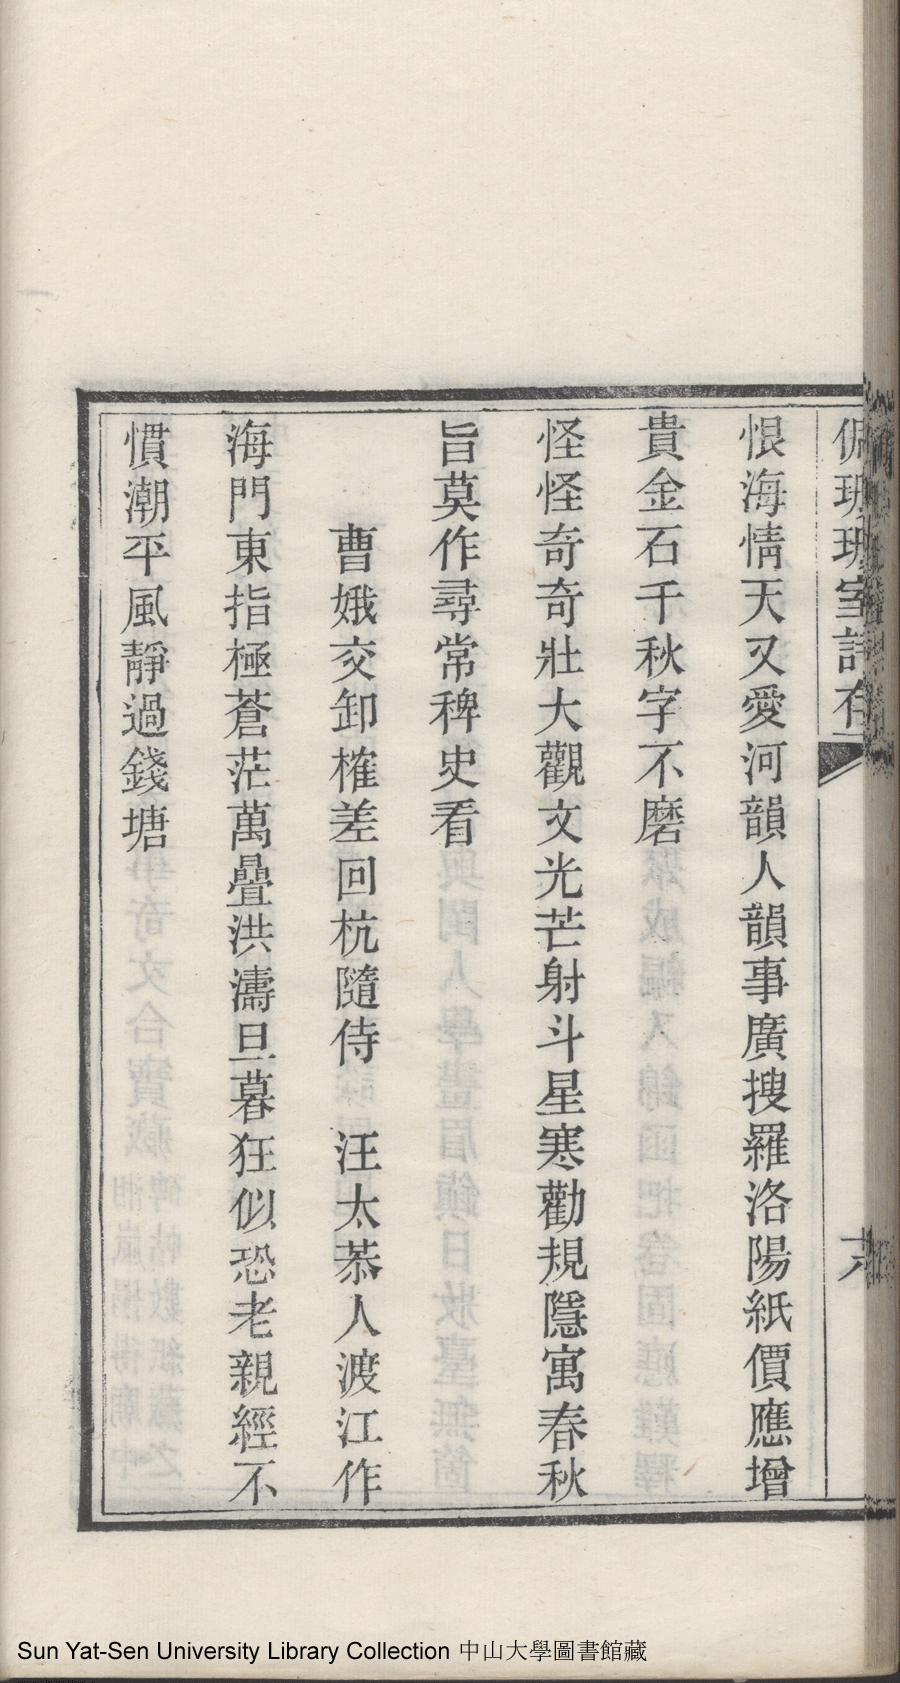 恨海情天又愛河韻人韻事廣搜羅洛陽紙價應增
貴金石千秋字不磨
怪怪奇奇壯大觀文光芒射斗星寒勸規隱寓春秋
旨莫作尋常稗史看
曹娥交卸榷差回杭隨侍 汪太恭人渡江作
海門東指極蒼茫萬疊洪濤旦暮狂似恐老親經不
慣潮平風靜過錢塘
Sun Yat-Sen University Library Collection 中山大學圖書館藏